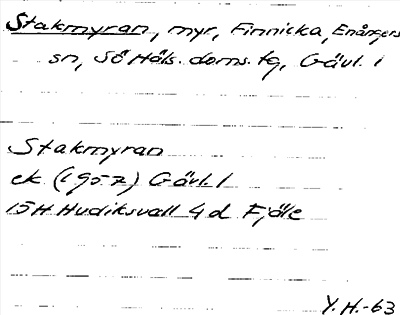 Stakmyran, myr, Finnicka, Enångers
sn, Sö Häls. doms. tg, Gävl. l
Stakmyran
ek (1957) Gävl. l
15H Hudiksvall 4d Fjäle
Y. H.-63